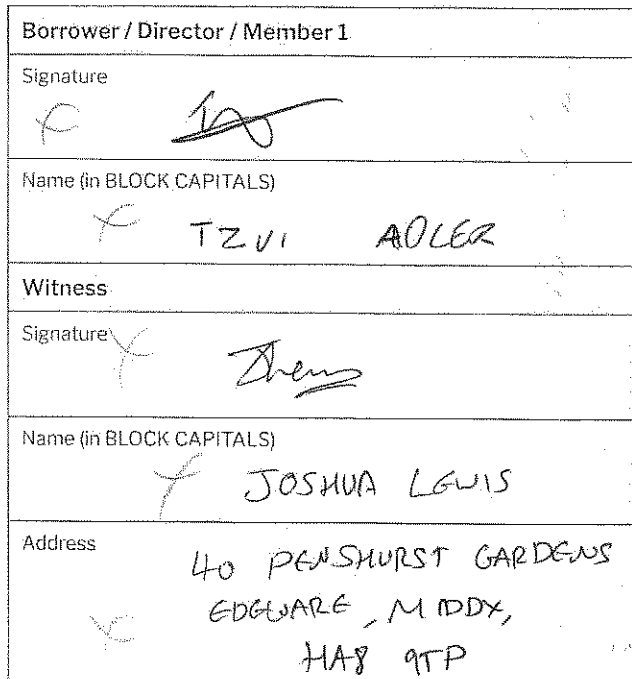 Borrower / Director / Member 1
Signature
Name (in BLOCK CAPITALS)
TZVI ADLER
Witness
Signature
Name (in BLOCK CAPITALS)
JOSHUA LEWIS
Address
40 PENSHURST GARDENS
EDGWARE, MIDDX,
HA8 9TP